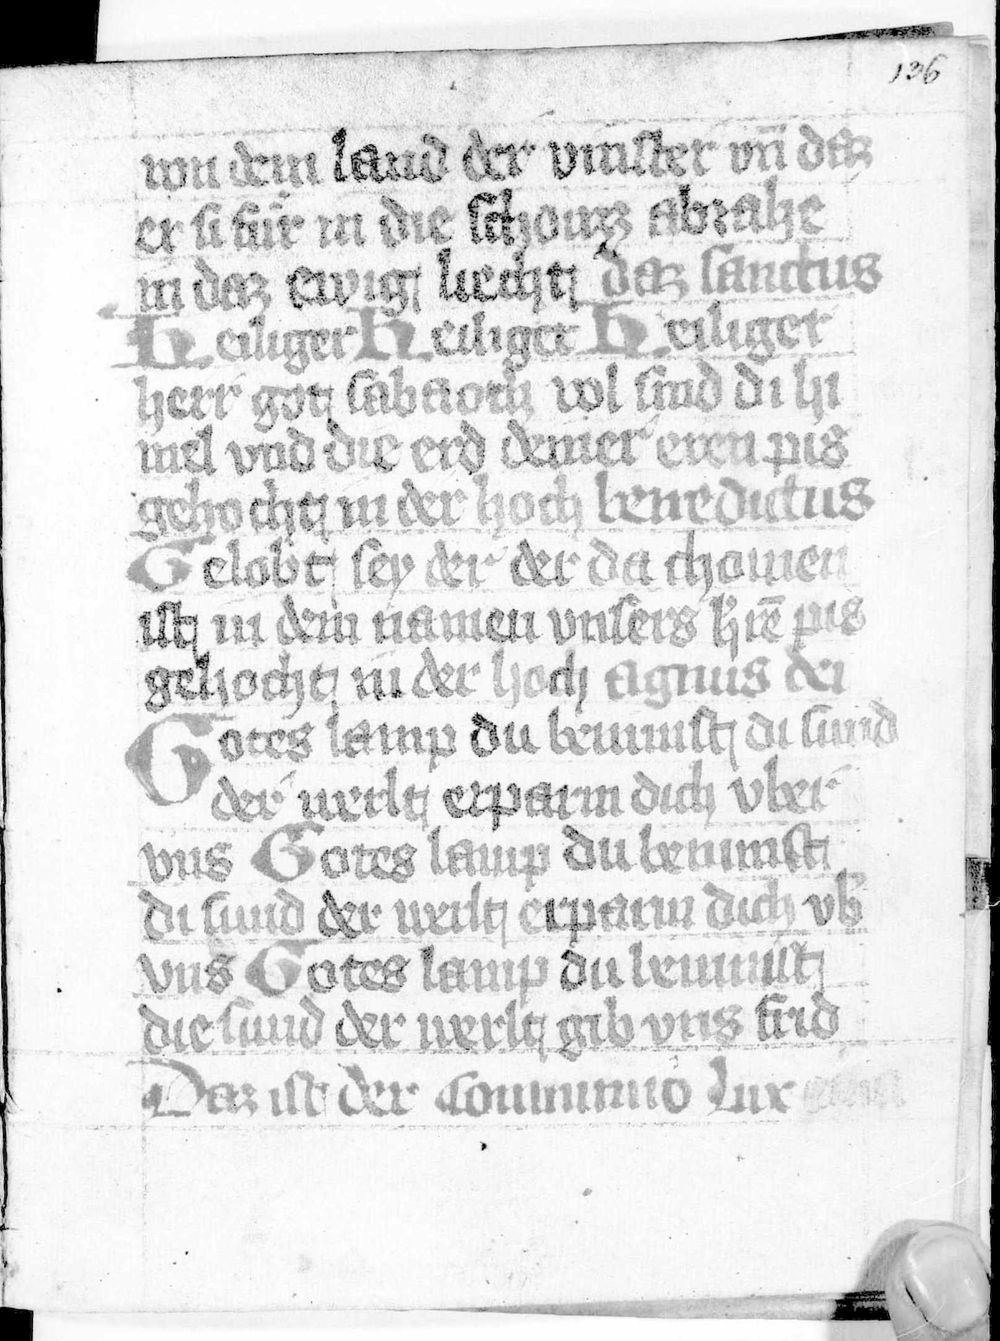 136
von dem land der vinster vn̄ daz
er si für in die schozz abrahe
in daz ewig liecht daz sanctus
Heiliger Heiliger Heiliger
herr got sabaoth vol sind di hi
mel vnd die erd deiner eren pis
gehocht in der hoch benedictus
Gelobt sey der der da chomen
ist in dem namen vnsers hrē pis
gehocht in der hoch agnus dei
Gotes lamp du benimst di sund
der werlt erparm dich vber
vns Gotes lamp du benimst
di sund der werlt erparm dich vb
vns Gotes lamp du benimst
die sund der werlt gib vns frid
Daz ist der Communio Lux